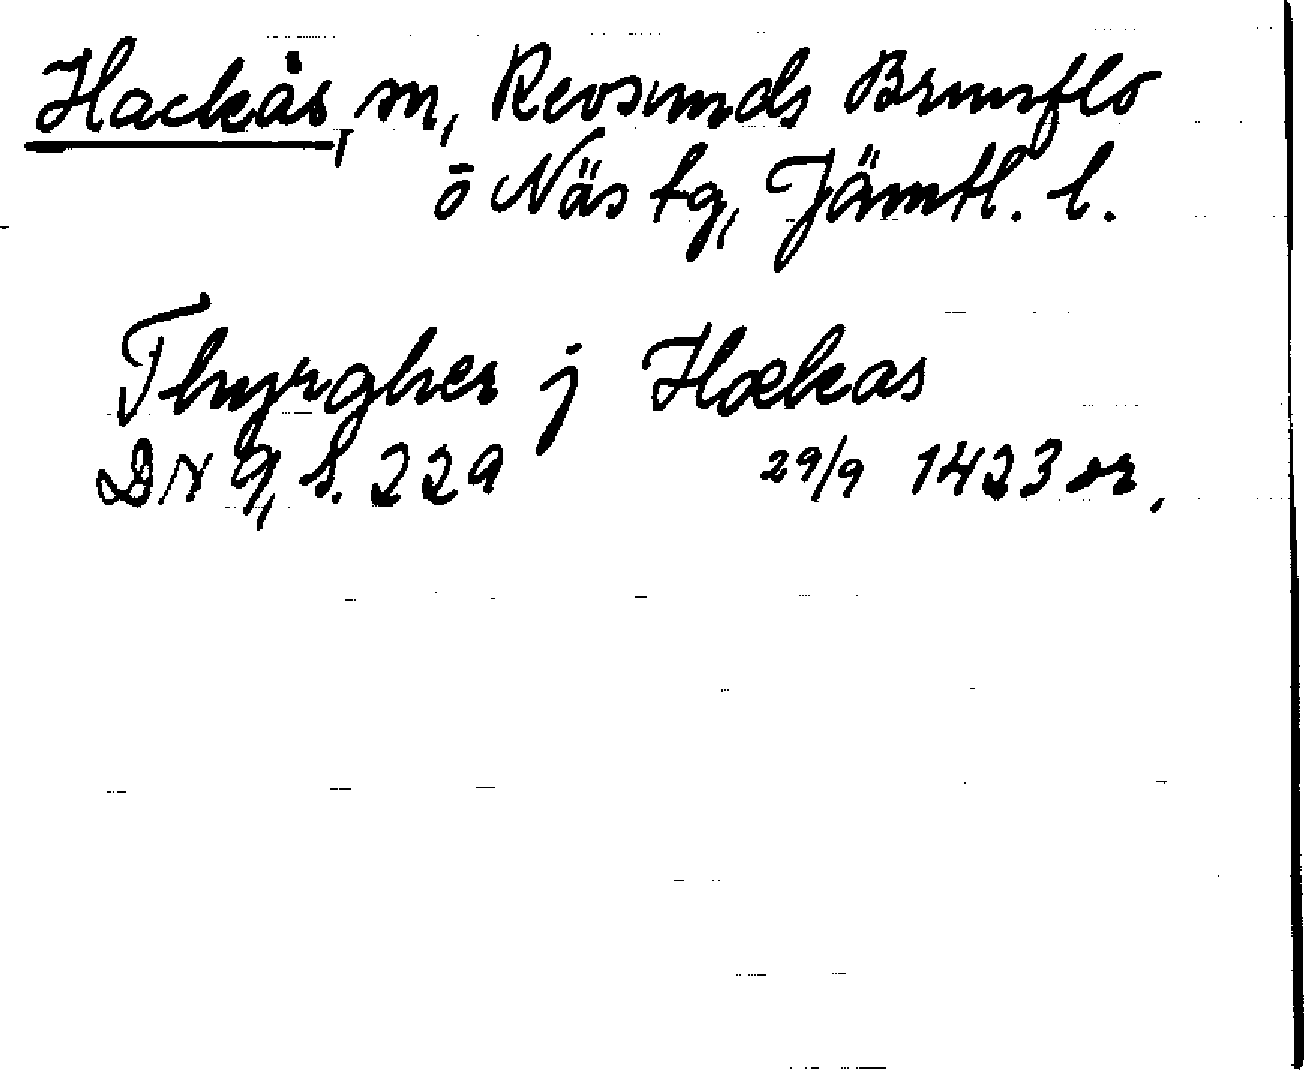 Hackås, sn, Revsunds Brunflo
ō Näs tg, Jämtl. l.
Thyrgher j Hækas
DN 9, s. 229 29/9 1423 or.